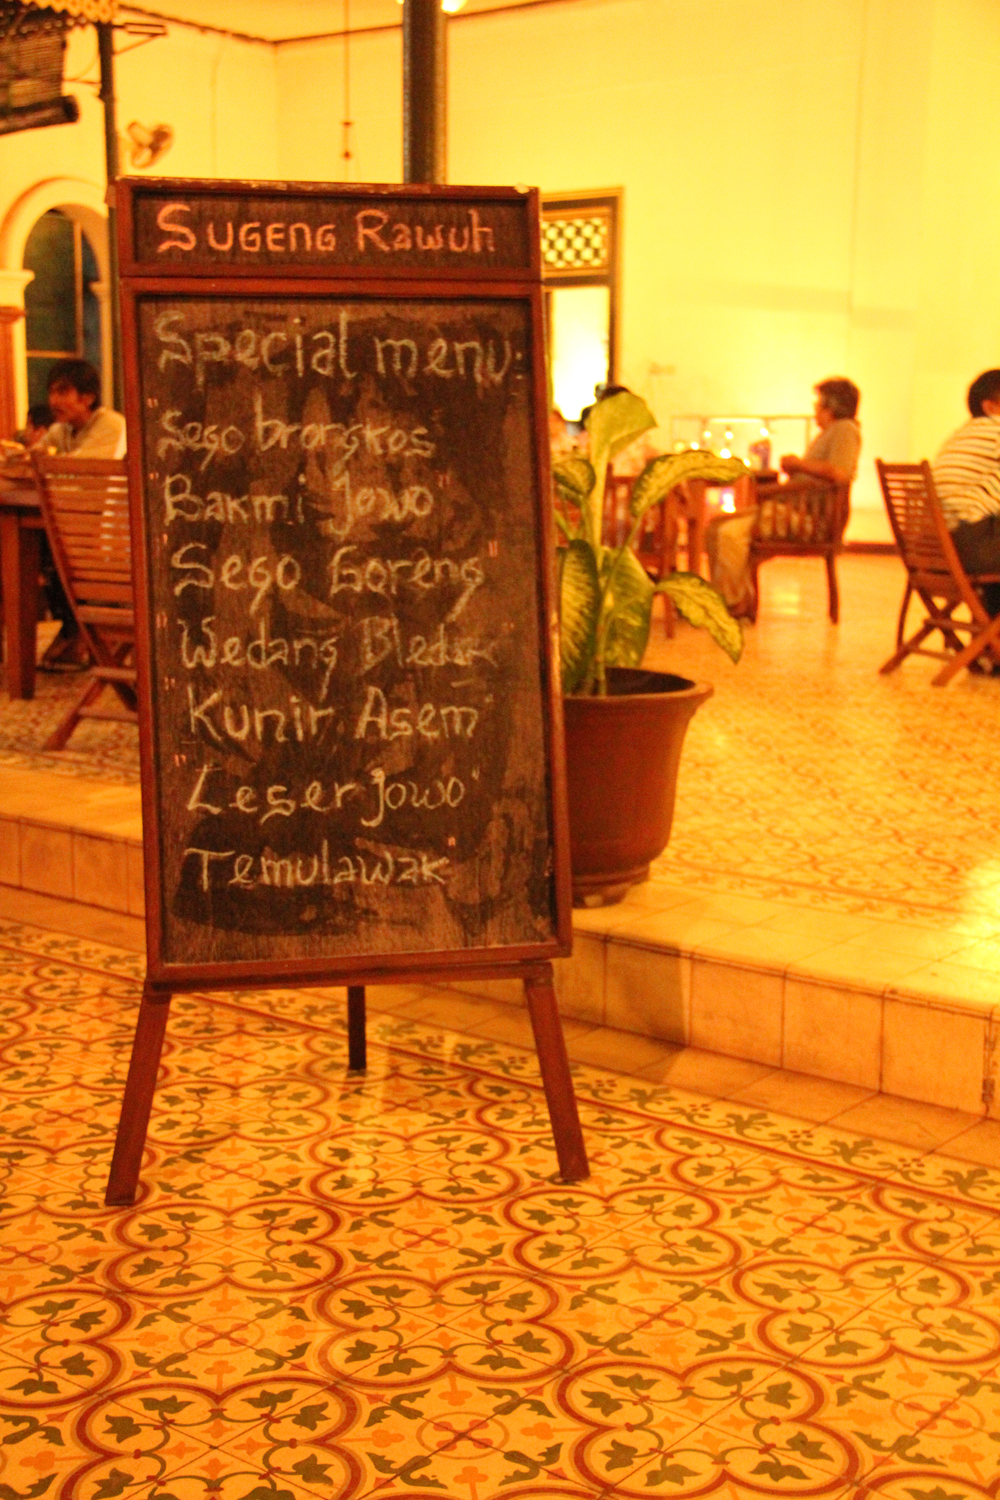 SUGENG RAWUH
Special menu:
"Sego brongkos
"Bakmi Jowo"
"Sego Goreng"
"Wedang Bledek"
"Kunir Asem"
"Leger Jowo"
Temulawak"